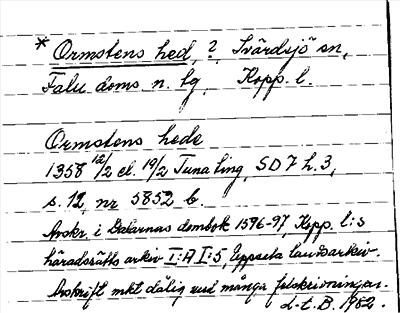 * Ormstens hed, ?, Svärdsjö sn,
Falu doms n. tg, Kopp. l.
Ormstens hede
1358 12/2 el. 19/2 Tuna ting, SD 7 h. 3,
s. 12, nr 5852 b.
Avskr. i Dalarnas dombok 1596-97, Kopp. l:s
häradsrätts arkiv I:A I:5, Uppsala landsarkiv.
Avskrift mkt dålig med många felskrivningar.
d-t. B. 1982.